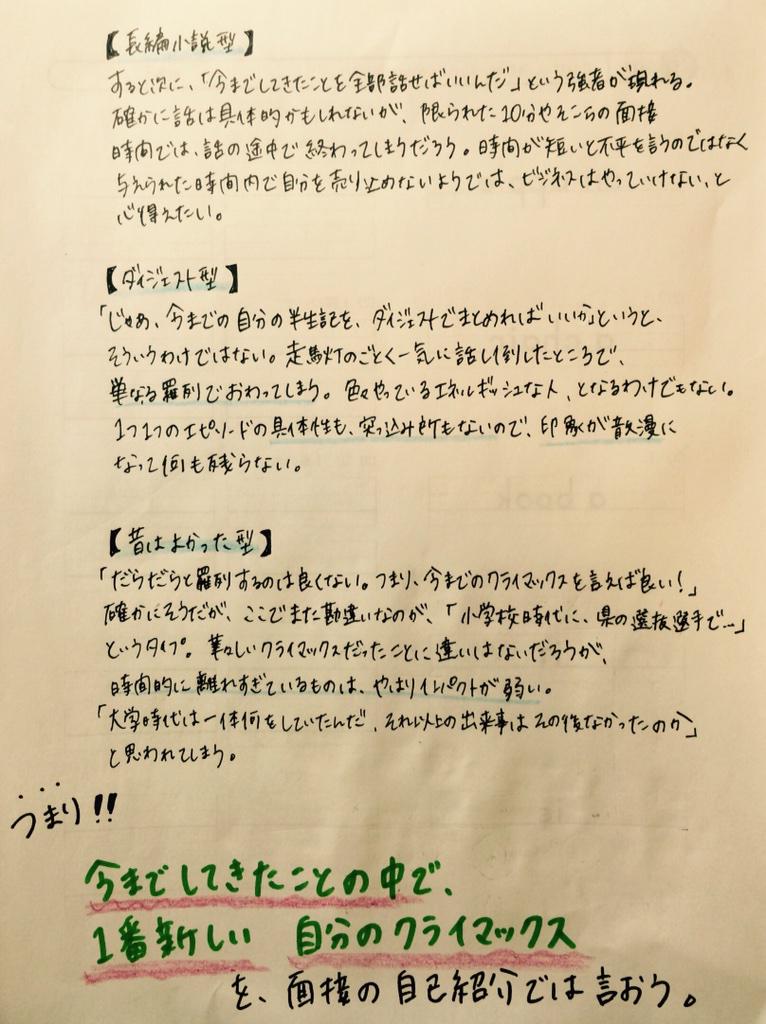 【長編小説型】
すると次に、「今までしてきたことを全部話せばいいんだ」という強者が現れる。
確かに話は具体的かもしれないが、限られた10分やそこらの面接
時間では、話の途中で終わってしまうだろう。時間が短いと不平を言うのではなく
与えられた時間内で自分を売り込めないようでは、ビジネスはやっていけない、と
心得えたい。
【ダイジェスト型】
「じゃあ、今までの自分の半生記を、ダイジェストでまとめればいいか」というと、
そういうわけではない。走馬灯のごとく一気に話し倒したところで、
単なる羅列でおわってしまう。色々やっているエネルギッシュな人、となるわけでもない。
1つ1つのエピソードの具体性も、突っ込み所もないので、印象が散漫に
なって何も残らない。
【昔はよかった型】
「だらだらと羅列するのは良くない。つまり、今までのクライマックスを言えば良い!」
確かにそうだが、ここでまた勘違いなのが、「小学校時代に、県の選抜選手で…」
というタイプ。華々しいクライマックスだったことに違いはないだろうが、
時間的に離れすぎているものは、やはりインパクトが弱い。
「大学時代は一体何をしていたんだ、それ以上の出来事はその後なかったのか」
と思われてしまう。
つまり!!
今までしてきたことの中で、
1番新しい 自分のクライマックス
を、面接の自己紹介では言おう。